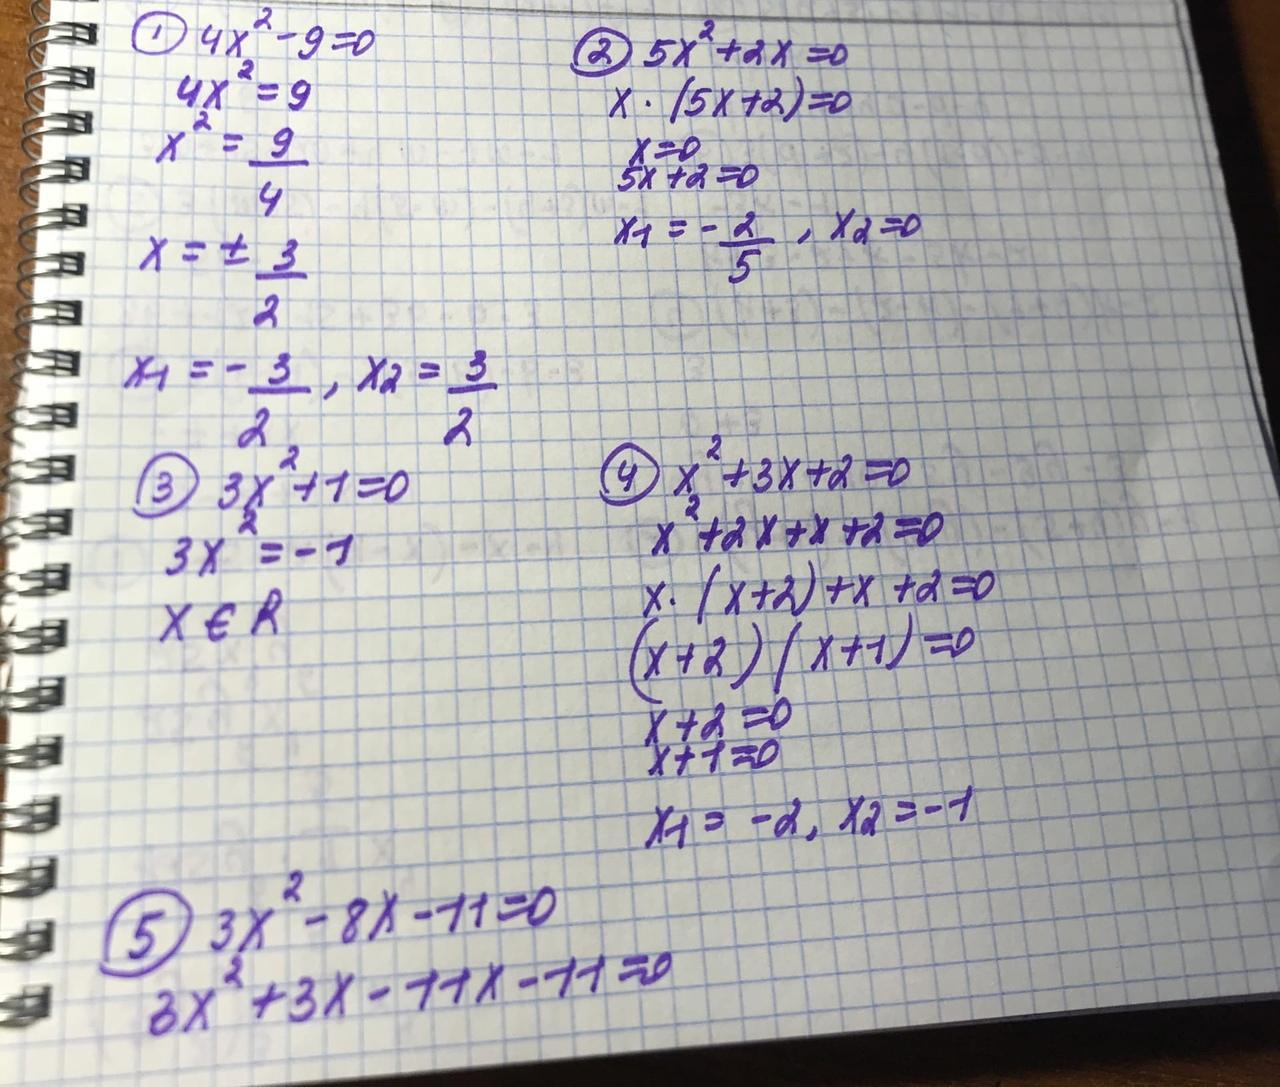 ① 4x² - 9 = 0
4x² = 9
x² = 9/4
x = ± 3/2
x1 = - 3/2 , x2 = 3/2
② 5x² + 2x = 0
x · (5x + 2) = 0
x = 0
5x + 2 = 0
x1 = - 2/5 , x2 = 0
③ 3x² + 1 = 0
3x² = - 1
x ∈ R
④ x² + 3x + 2 = 0
x² + 2x + x + 2 = 0
x · (x + 2) + x + 2 = 0
(x + 2) (x + 1) = 0
x + 2 = 0
x + 1 = 0
x1 = -2, x2 = -1
⑤ 3x² - 8x - 11 = 0
3x² + 3x - 11x - 11 = 0